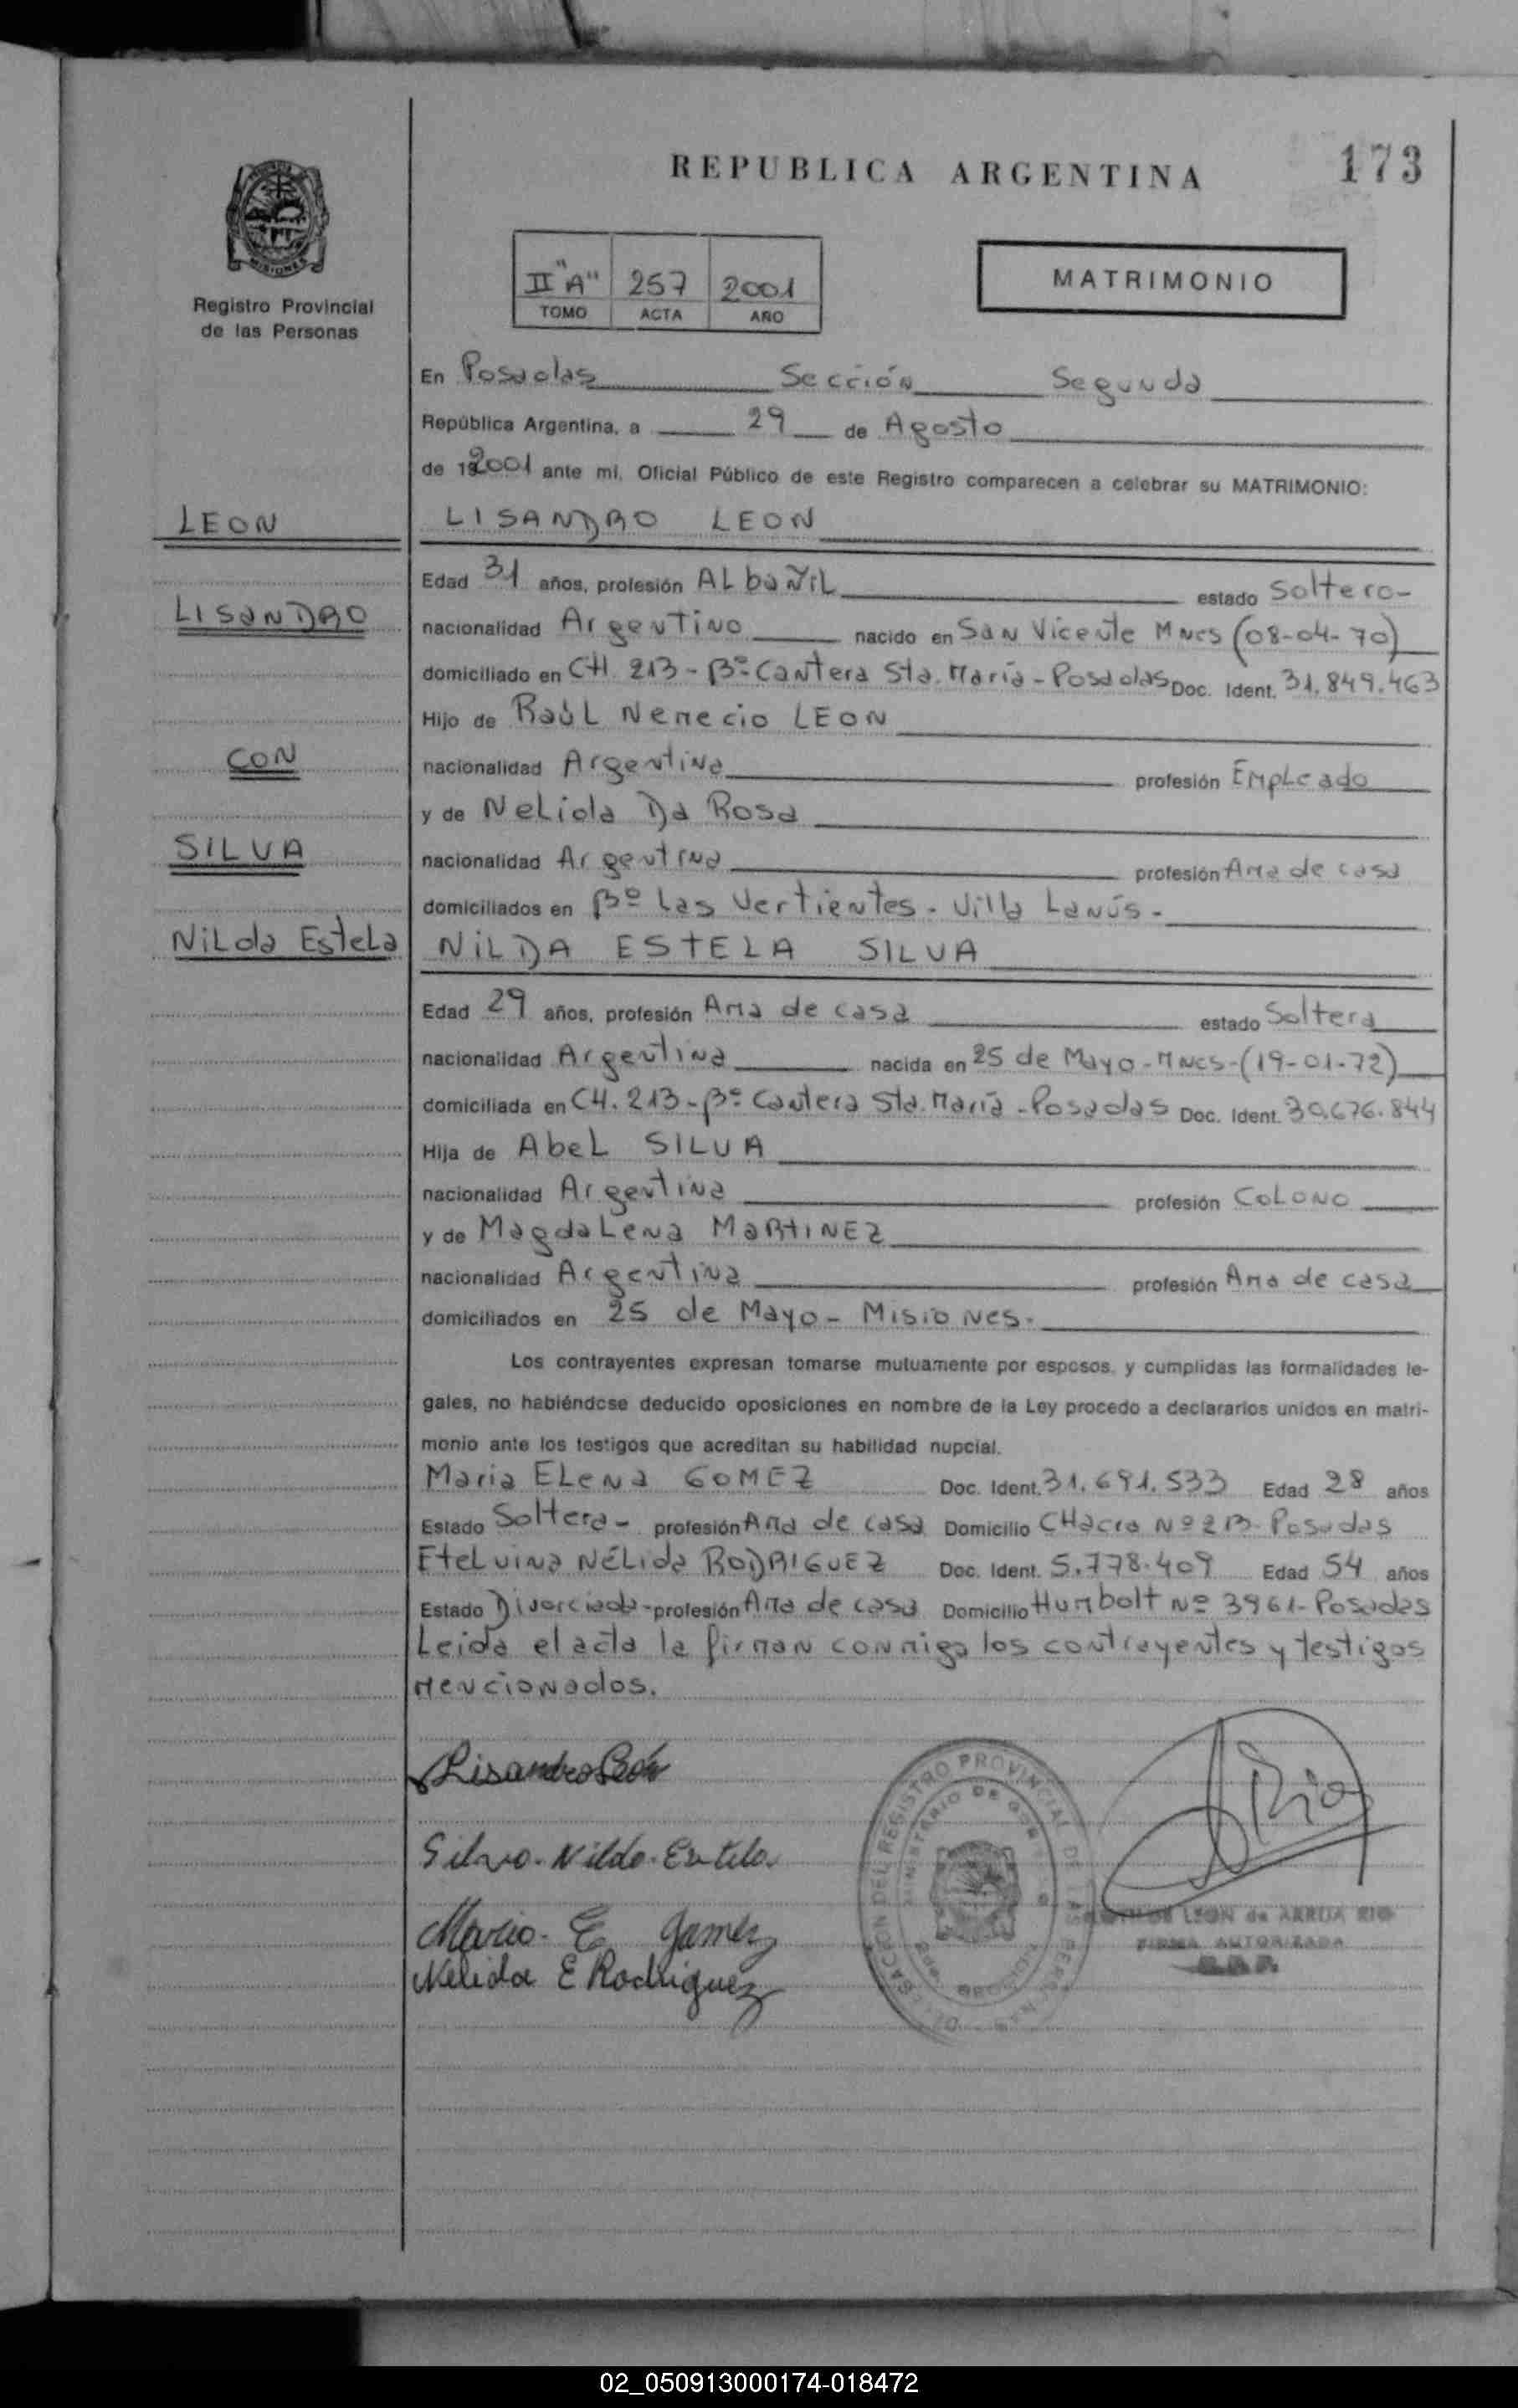 REPUBLICA ARGENTINA
173
MISIONES
Registro Provincial
de las Personas
II "A" 257 2001
TOMO ACTA AÑO
MATRIMONIO
En Posadas Sección Segunda
República Argentina, a 29 de Agosto
de 192001 ante mi, Oficial Público de este Registro comparecen a celebrar su MATRIMONIO:
LEON
LISANDRO LEON
Edad 31 años, profesión ALbañiL estado Soltero-
LISANDRO
nacionalidad Argentino nacido en San Vicente Mnes (08-04-70)
domiciliado en CH. 213 - Bº Cantera Sta. María - Posadas Doc. Ident. 31.849.463
Hijo de Raúl Nemecio LEON
CON
nacionalidad Argentina profesión Empleado
y de Nelida Da Rosa
SILVA
nacionalidad Argentina profesión Ama de casa
domiciliados en Bº Las Vertientes - Villa Lanús -
Nilda Estela
NILDA ESTELA SILVA
Edad 29 años, profesión Ama de casa estado Soltera
nacionalidad Argentina nacida en 25 de Mayo - Mnes - (19-01-72)
domiciliada en CH. 213 - Bº Cantera Sta. María - Posadas Doc. Ident. 30.676.844
Hija de Abel SILVA
nacionalidad Argentina profesión Colono
y de Magdalena MARTINEZ
nacionalidad Argentina profesión Ama de casa
domiciliados en 25 de Mayo - Misiones.
Los contrayentes expresan tomarse mutuamente por esposos, y cumplidas las formalidades le-
gales, no habiéndose deducido oposiciones en nombre de la Ley procedo a declararlos unidos en matri-
monio ante los testigos que acreditan su habilidad nupcial.
Maria Elena GOMEZ Doc. Ident. 31.691.533 Edad 28 años
Estado Soltera - profesión Ama de casa Domicilio CHacra Nº 213 - Posadas
Etelvina Nélida RODRIGUEZ Doc. Ident. 5.778.409 Edad 54 años
Estado Divorciada - profesión Ama de casa Domicilio Humbolt Nº 3961 - Posadas
Leida el acta la firman conmigo los contrayentes y testigos
mencionados.
Lisandro León
Silva. Nilda. Estela.
Maria. E Gomez
Nelida E Rodriguez
REGISTRO PROVINCIAL DE LAS PERSONAS
MINISTERIO DE
Rio
LEON de ARRUA RIO
FIRMA AUTORIZADA
02_050913000174-018472